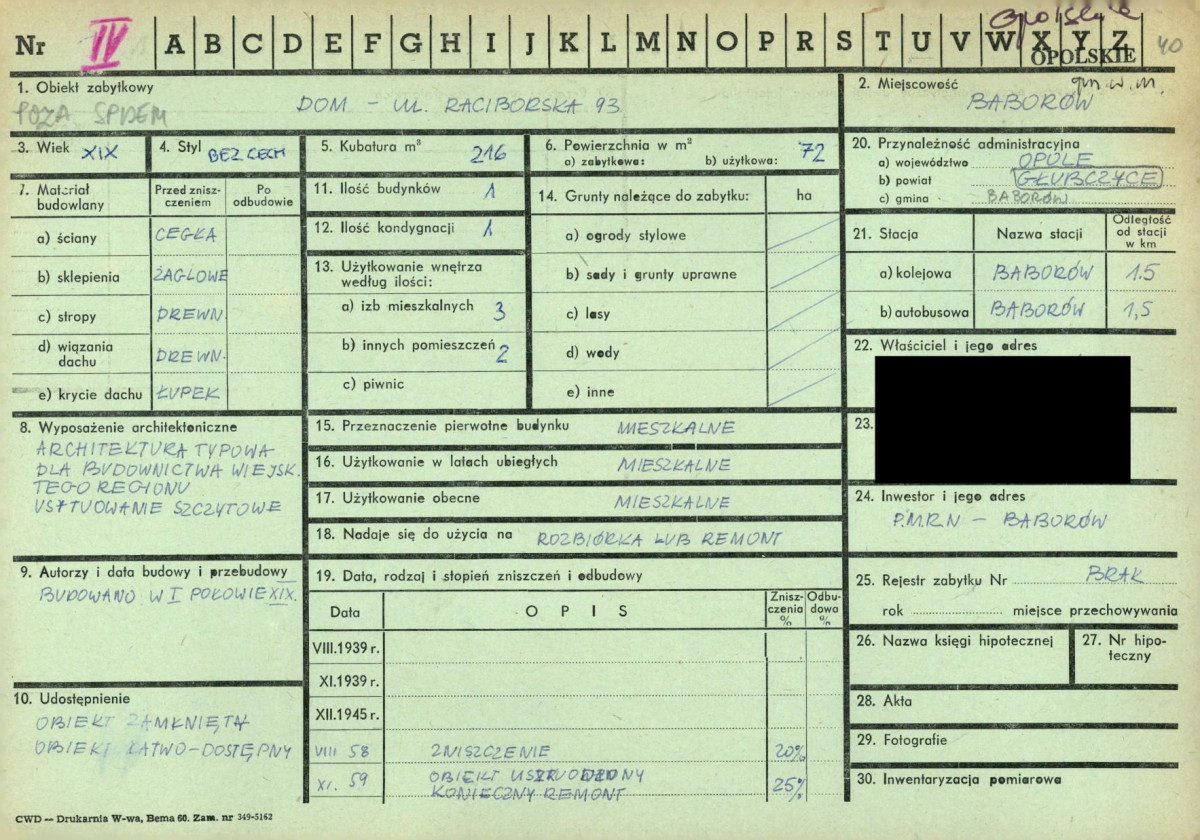 Nr IV A B C D E F G H I J K L M N O P R S T U V W X Y Z
Opolskie
OPOLSKIE
40
1. Obiekt zabytkowy
POZA SPISEM
DOM – UL. RACIBORSKA 93
2. Miejscowość
gm. w. m.
BABORÓW
3. Wiek XIX
4. Styl BEZ CECH
5. Kubatura m³ 216
6. Powierzchnia w m²
a) zabytkowa: b) użytkowa: 72
20. Przynależność administracyjna
a) województwo OPOLE
b) powiat GŁUBCZYCE
c) gmina BABORÓW
7. Materiał budowlany
Przed zniszczeniem
Po odbudowie
a) ściany CEGŁA
b) sklepienia ŻAGLOWE
c) stropy DREWN.
d) wiązania dachu DREWN.
e) krycie dachu ŁUPEK
11. Ilość budynków 1
12. Ilość kondygnacji 1
13. Użytkowanie wnętrza
według ilości:
a) izb mieszkalnych 3
b) innych pomieszczeń 2
c) piwnic
14. Grunty należące do zabytku: ha
a) ogrody stylowe
b) sady i grunty uprawne
c) lasy
d) wody
e) inne
21. Stacja
Nazwa stacji
Odległość
od stacji
w km
a) kolejowa BABORÓW 1.5
b) autobusowa BABORÓW 1,5
22. Właściciel i jego adres
23.
8. Wyposażenie architektoniczne
ARCHITEKTURA TYPOWA
DLA BUDOWNICTWA WIEJSK.
TEGO REGIONU
USYTUOWANIE SZCZYTOWE
15. Przeznaczenie pierwotne budynku MIESZKALNE
16. Użytkowanie w latach ubiegłych MIESZKALNE
17. Użytkowanie obecne MIESZKALNE
18. Nadaje się do użycia na ROZBIÓRKA LUB REMONT
24. Inwestor i jego adres
P.M.R.N – BABORÓW
9. Autorzy i data budowy i przebudowy
BUDOWANO W I POŁOWIE XIX.
19. Data, rodzaj i stopień zniszczeń i odbudowy
Data
OPIS
Zniszczenia %
Odbudowa %
VIII.1939 r.
XI.1939 r.
XII.1945 r.
VIII 58 ZNISZCZENIE 20%
XI. 59 OBIEKT USZKODZONY
KONIECZNY REMONT 25%
25. Rejestr zabytku Nr BRAK
rok miejsce przechowywania
26. Nazwa księgi hipotecznej
27. Nr hipoteczny
10. Udostępnienie
OBIEKT ZAMKNIĘTY
OBIEKT ŁATWO-DOSTĘPNY
28. Akta
29. Fotografie
30. Inwentaryzacja pomiarowa
CWD — Drukarnia W-wa, Bema 60. Zam. nr 349-5162